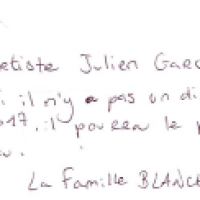 etiste Julien Garc
i il n'y a pas un di
017, il pourra le p
La Famille BLANC